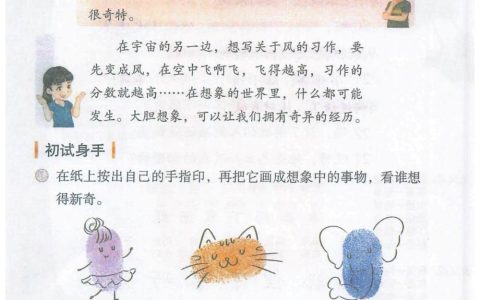 很奇特。
在宇宙的另一边，想写关于风的习作，要
先变成风，在空中飞啊飞，飞得越高，习作的
分数就越高……在想象的世界里，什么都可能
发生。大胆想象，可以让我们拥有奇异的经历。
初试身手
在纸上按出自己的手指印，再把它画成想象中的事物，看谁想
得新奇。